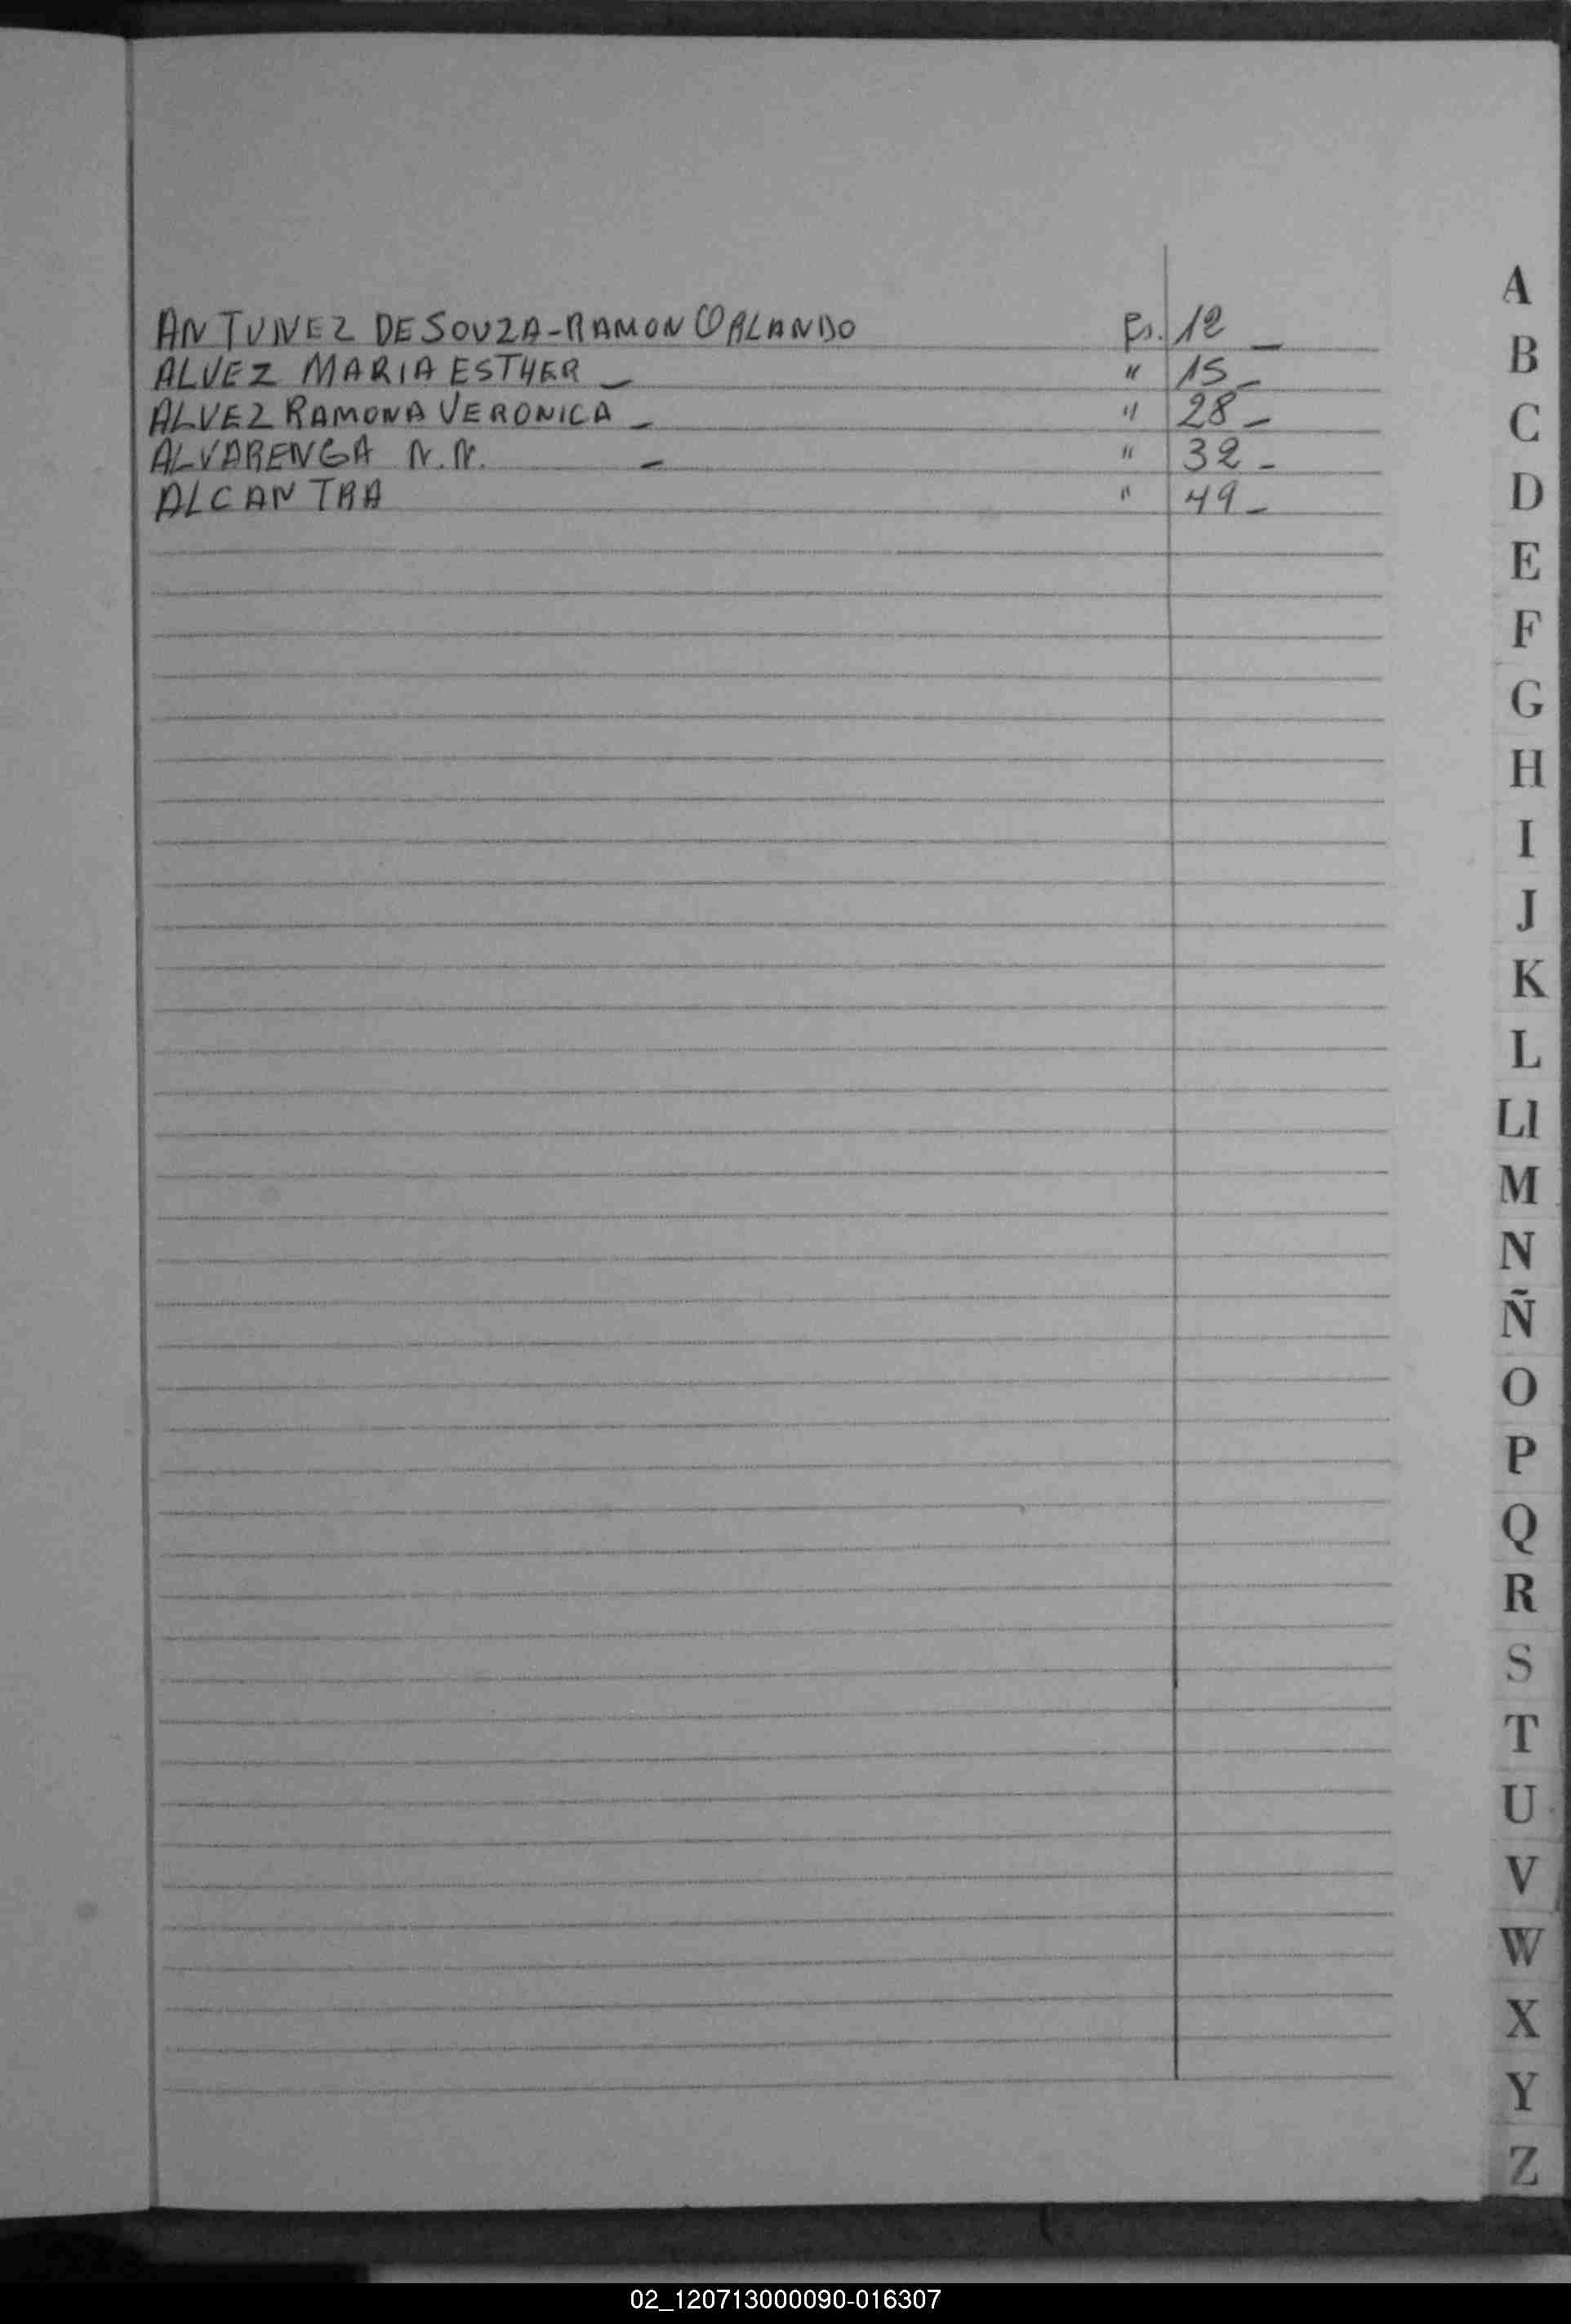 ANTUNEZ DE SOUZA - RAMON ORLANDO Fs. 12 _
ALVEZ MARIA ESTHER _ " 15 _
ALVEZ RAMONA VERONICA _ " 28 _
ALVARENGA N.N. _ " 32 _
ALCANTRA " 49 _
A
B
C
D
E
F
G
H
I
J
K
L
Ll
M
N
Ñ
O
P
Q
R
S
T
U
V
W
X
Y
Z
02_120713000090-016307